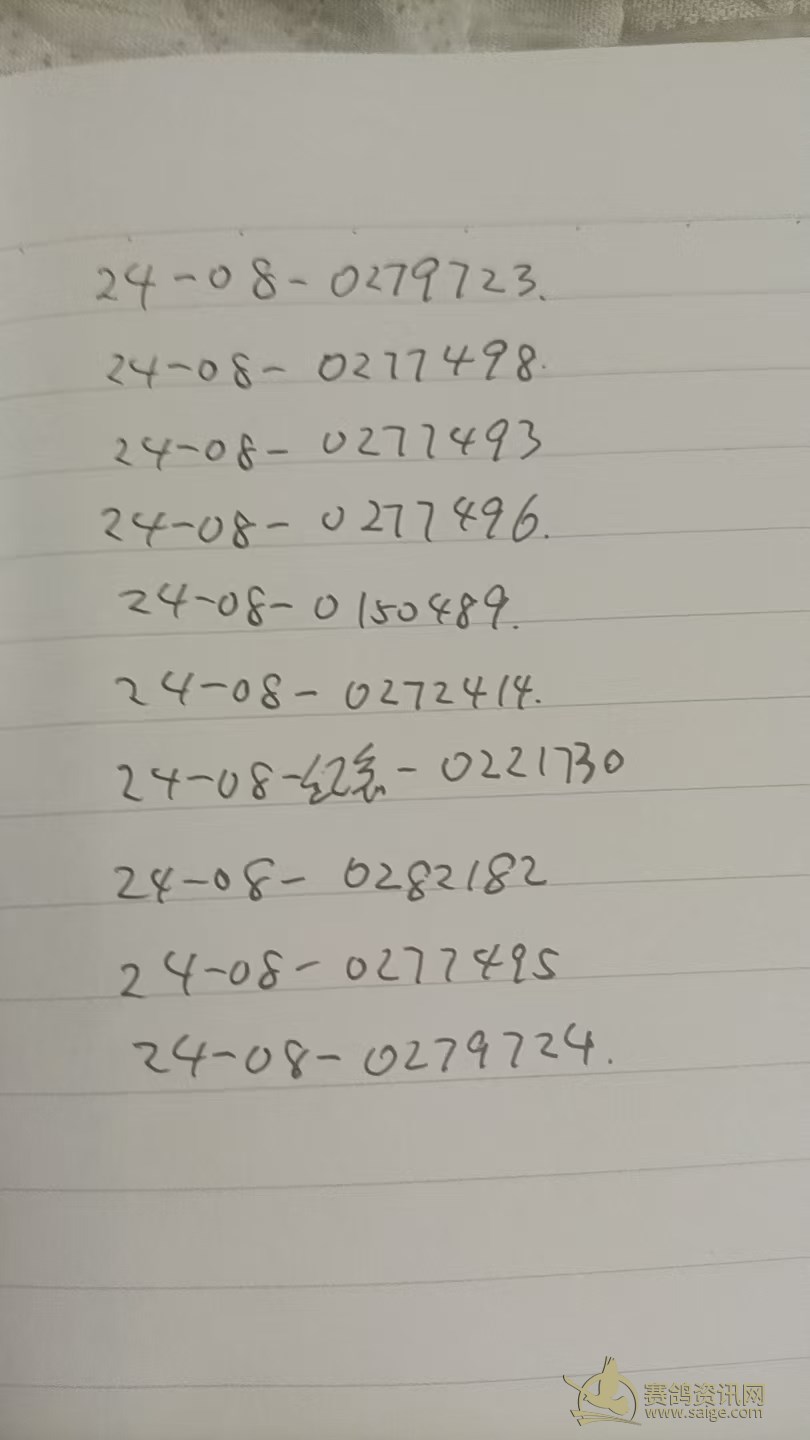 24-08-0279723.
24-08-0277498.
24-08-0277493
24-08-0277496.
24-08-0150489.
24-08-0272414.
24-08-纪念-0221730
24-08-0282182
24-08-0277495
24-08-0279724.
赛鸽资讯网
www.saige.com